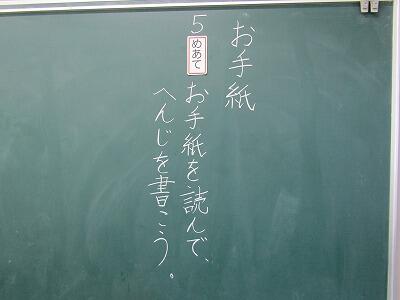 お手紙
5 めあて お手紙を読んで、
へんじを書こう。